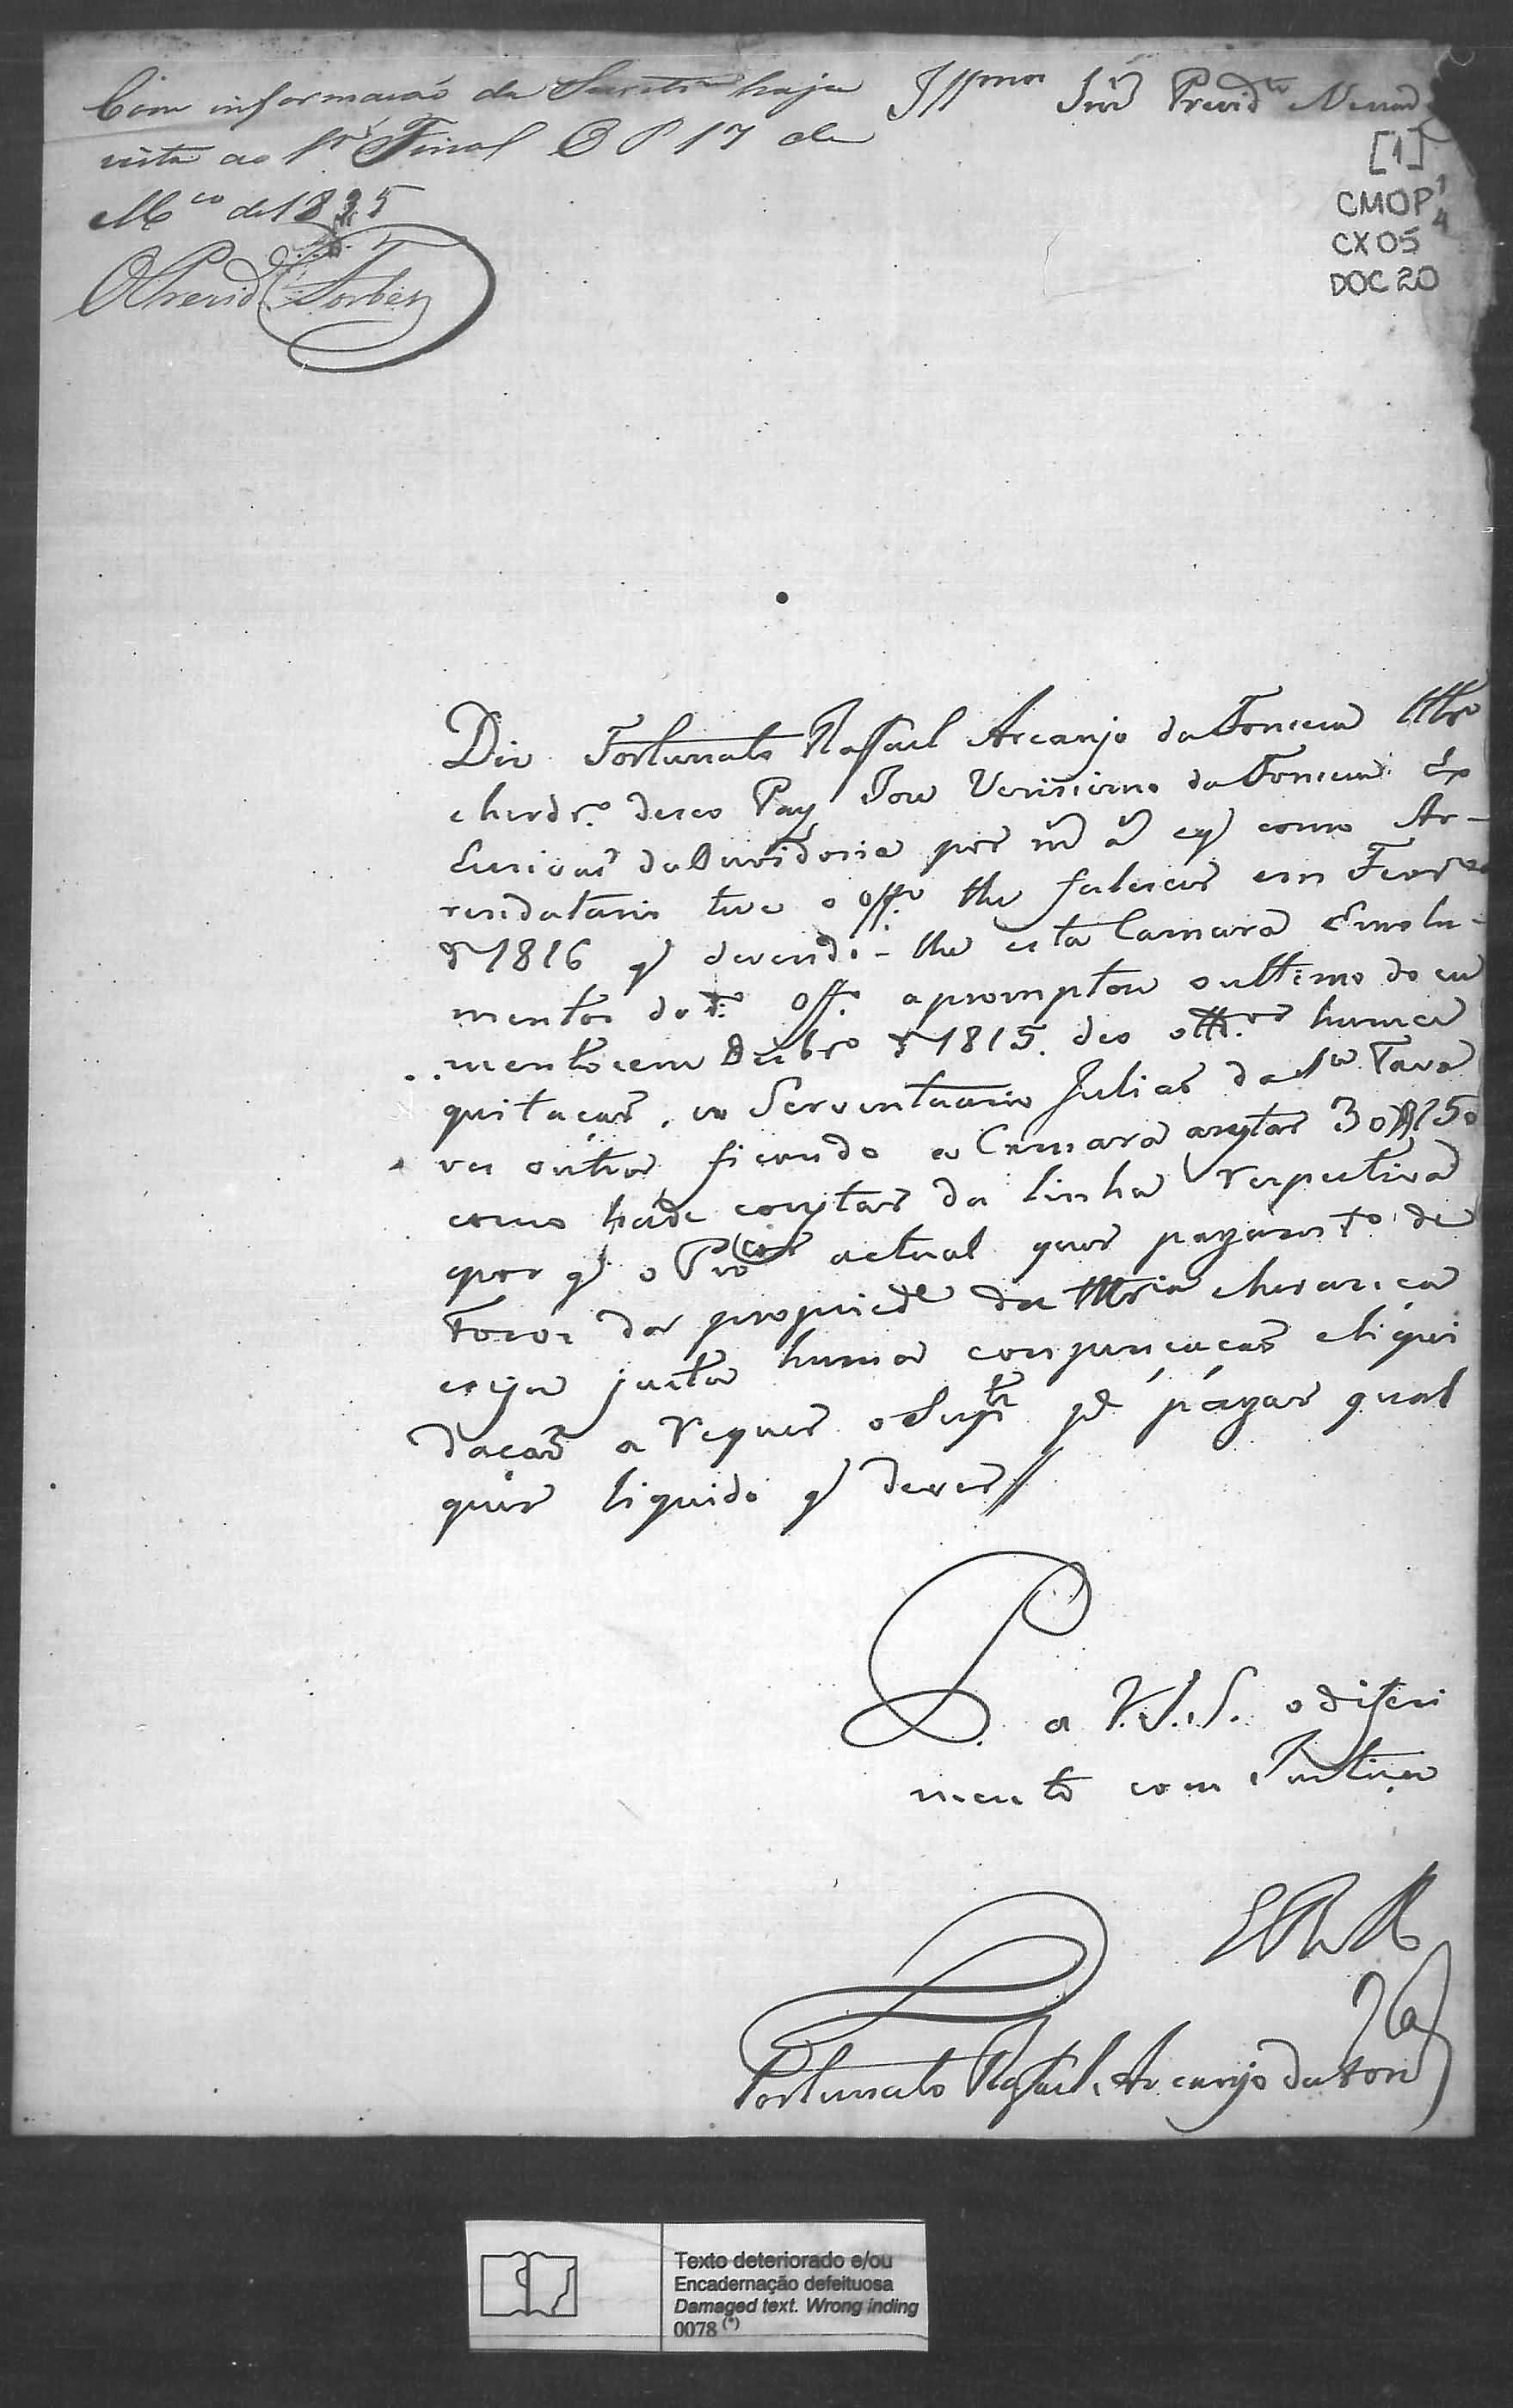 Com informação da Secretrª haja
vista ao Fiscal C P 17 de
Mço de 1835
O Presid Forbes
Illmos Snr Presidte
[1]
CMOP 1
4
CX 05
DOC 20
Diz Fortunato Raffael Arcanjo da Fonceca
e herdrº deseo Pay Joze Verissimo da Fonceca Ex
Escrivaõ da Ouvidoria por ms as e q como Ar-
rendatario teve o offº lhe faleceo em Fevrº
de 1816 q devendo-lhe esta Camara Emolu-
mentos do dº Offº apromptou o ultimo do cu
mento em Dezbrº de 1815. deo huma
quitaçaõ, eo Serventuario Juliaõ da Sª Tava
res outra ficando a Camara a restar 30$750
como hade constar da linha respectiva
por q o Procor actual quer pagamto de
Foros da propriede da herança
eseja justa huma conpençacaõ eliqui
dacaõ a Requer o Supte pª págar qual
quer liquido q dever//
P. a V.S.S. o diferi
mento com Justiça
E R Mce
Fortunato Rafael Arcanjo da Fonca
Texto deteriorado e/ou
Encadernação defeituosa
Damaged text. Wrong inding
0078 (*)